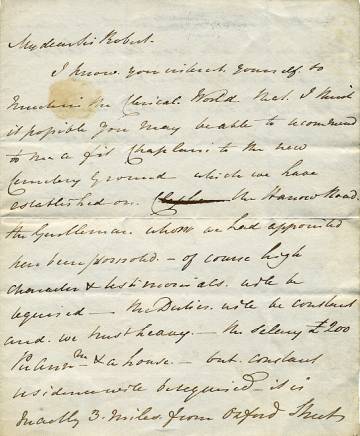 My dear Sir Robert.
I know you interest yourself so
much in the Clerical World that I think
it possible you may be able to recommend
to me a fit Chaplain to the new
Cemetery Ground which we have
established on the Harrow Road
the Gentleman whom we had appointed
has been - of course high
character & testimonials will be
required - the Duties will be constant
and we trust heavy - the Salary £200
Pr Annm & a house - but constant
residence will be required - it is
exactly 3 miles from Oxford Street